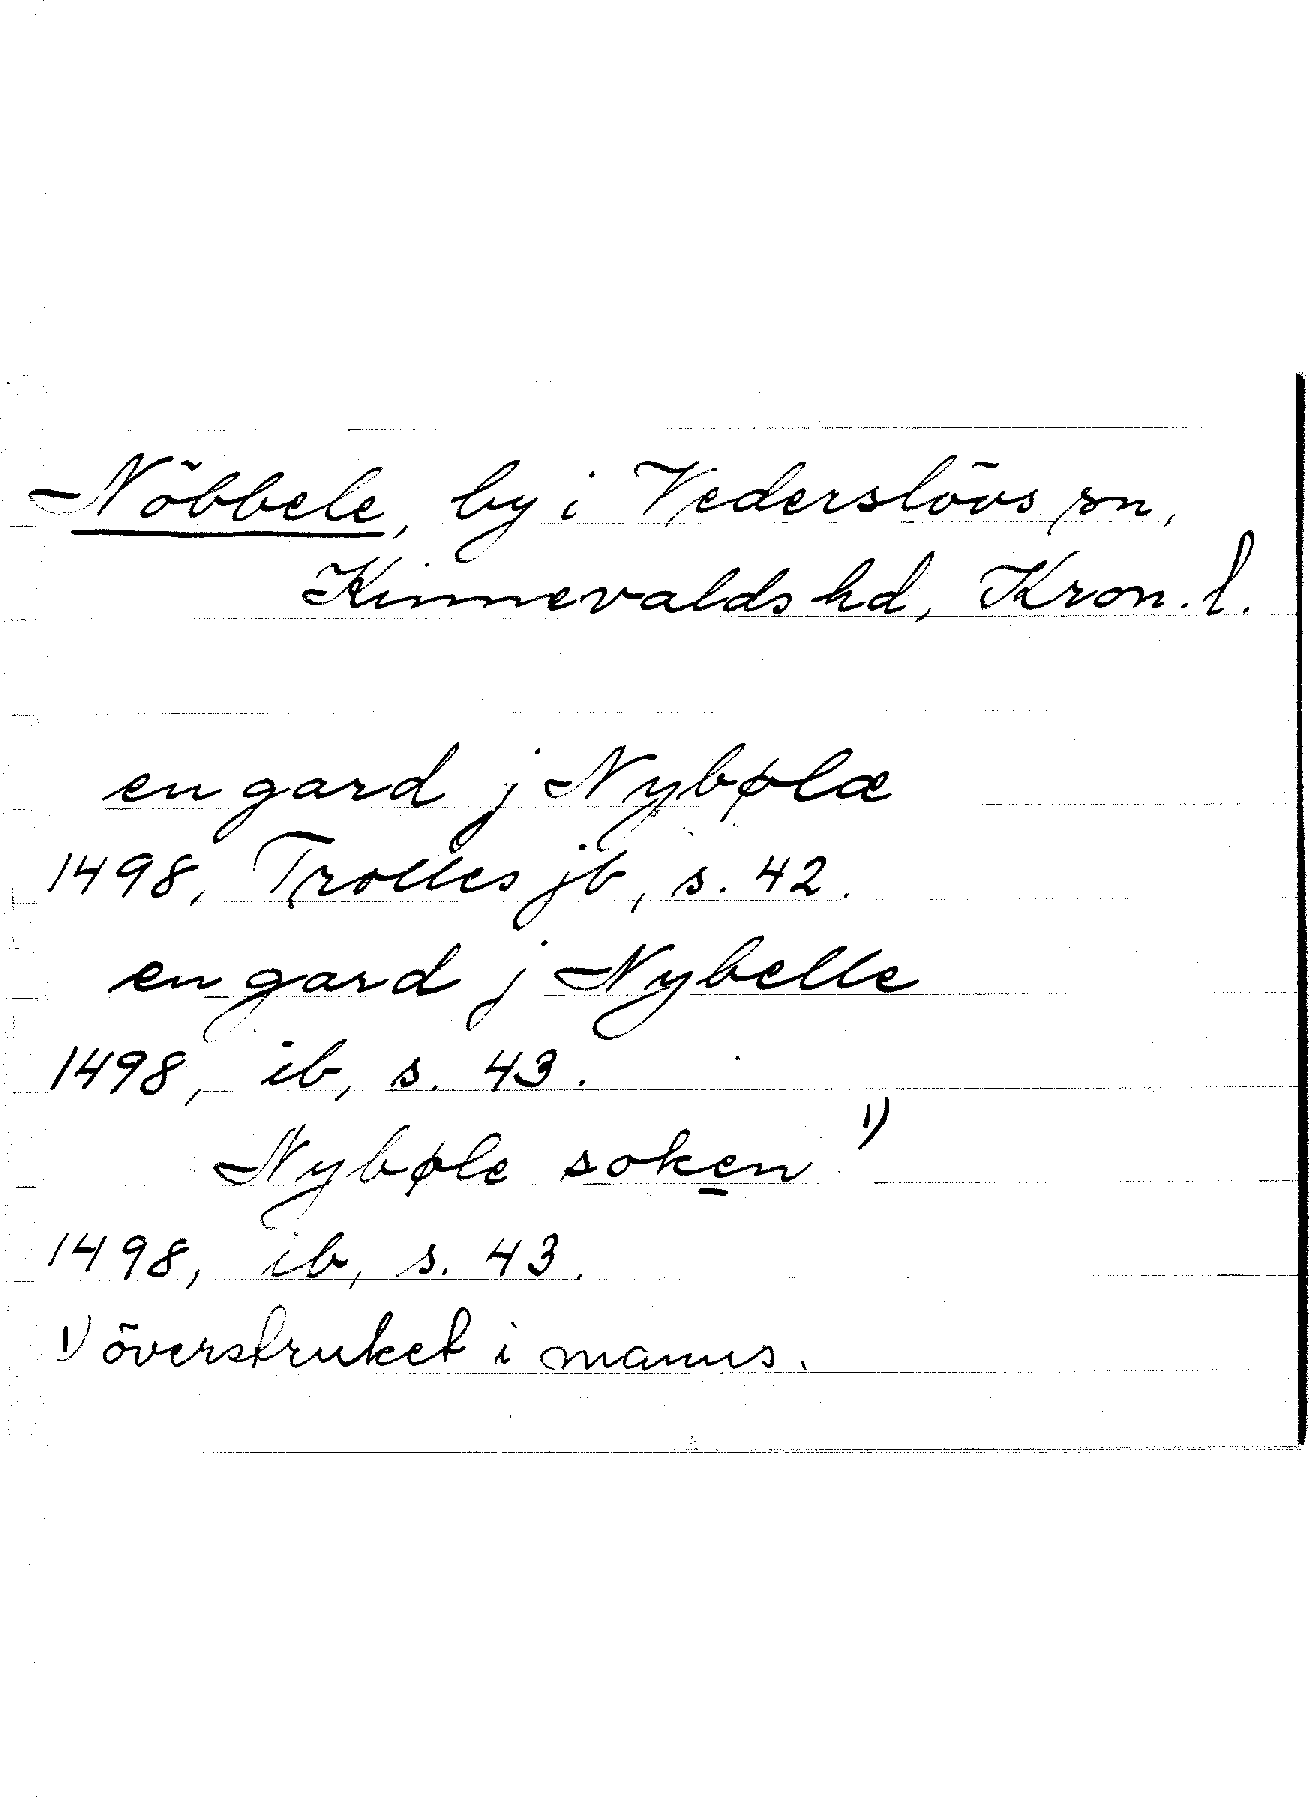 Nöbbele, by i Vederslövs sn,
Kinnevalds hd, Kron. l.
en gard j Nybølæ
1498, Trolles jb, s. 42.
en gard j Nybelle
1498, ib, s. 43.
Nybøle soken 1)
1498, ib, s. 43.
1) överstruket i manus.